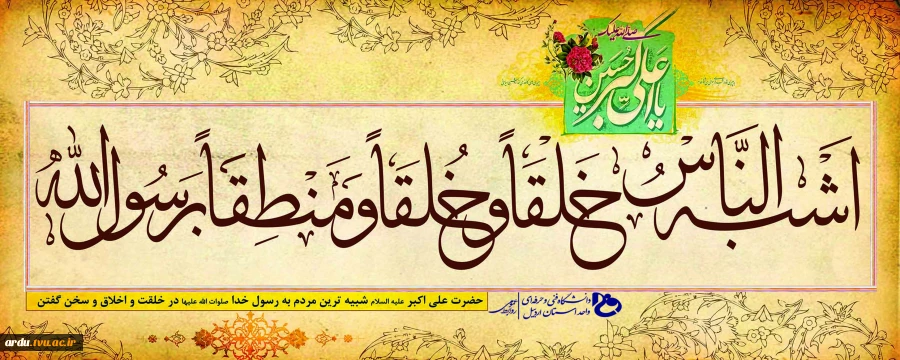 صلی الله علیک
یا علی اکبر حسین
اَشبَهُ النَّاسِ خَلقَاً وَ خُلقَاً وَ مَنطِقَاً بِرَسُولِ اللّٰه
حضرت علی اکبر علیه السلام شبیه ترین مردم به رسول خدا صلوات الله علیها در خلقت و اخلاق و سخن گفتن
دانشگاه فنی و حرفه‌ای
واحد استان اردبیل
ardu.tvu.ac.ir